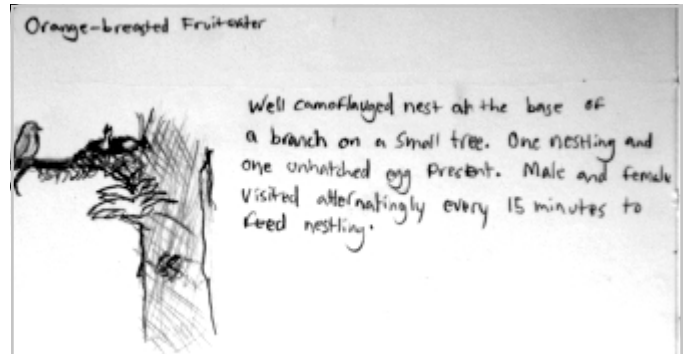 Orange-breasted Fruiteater
Well camoflauged nest at the base of
a branch on a small tree. One nestling and
one unhatched egg present. Male and female
visited alternatingly every 15 minutes to
feed nestling.